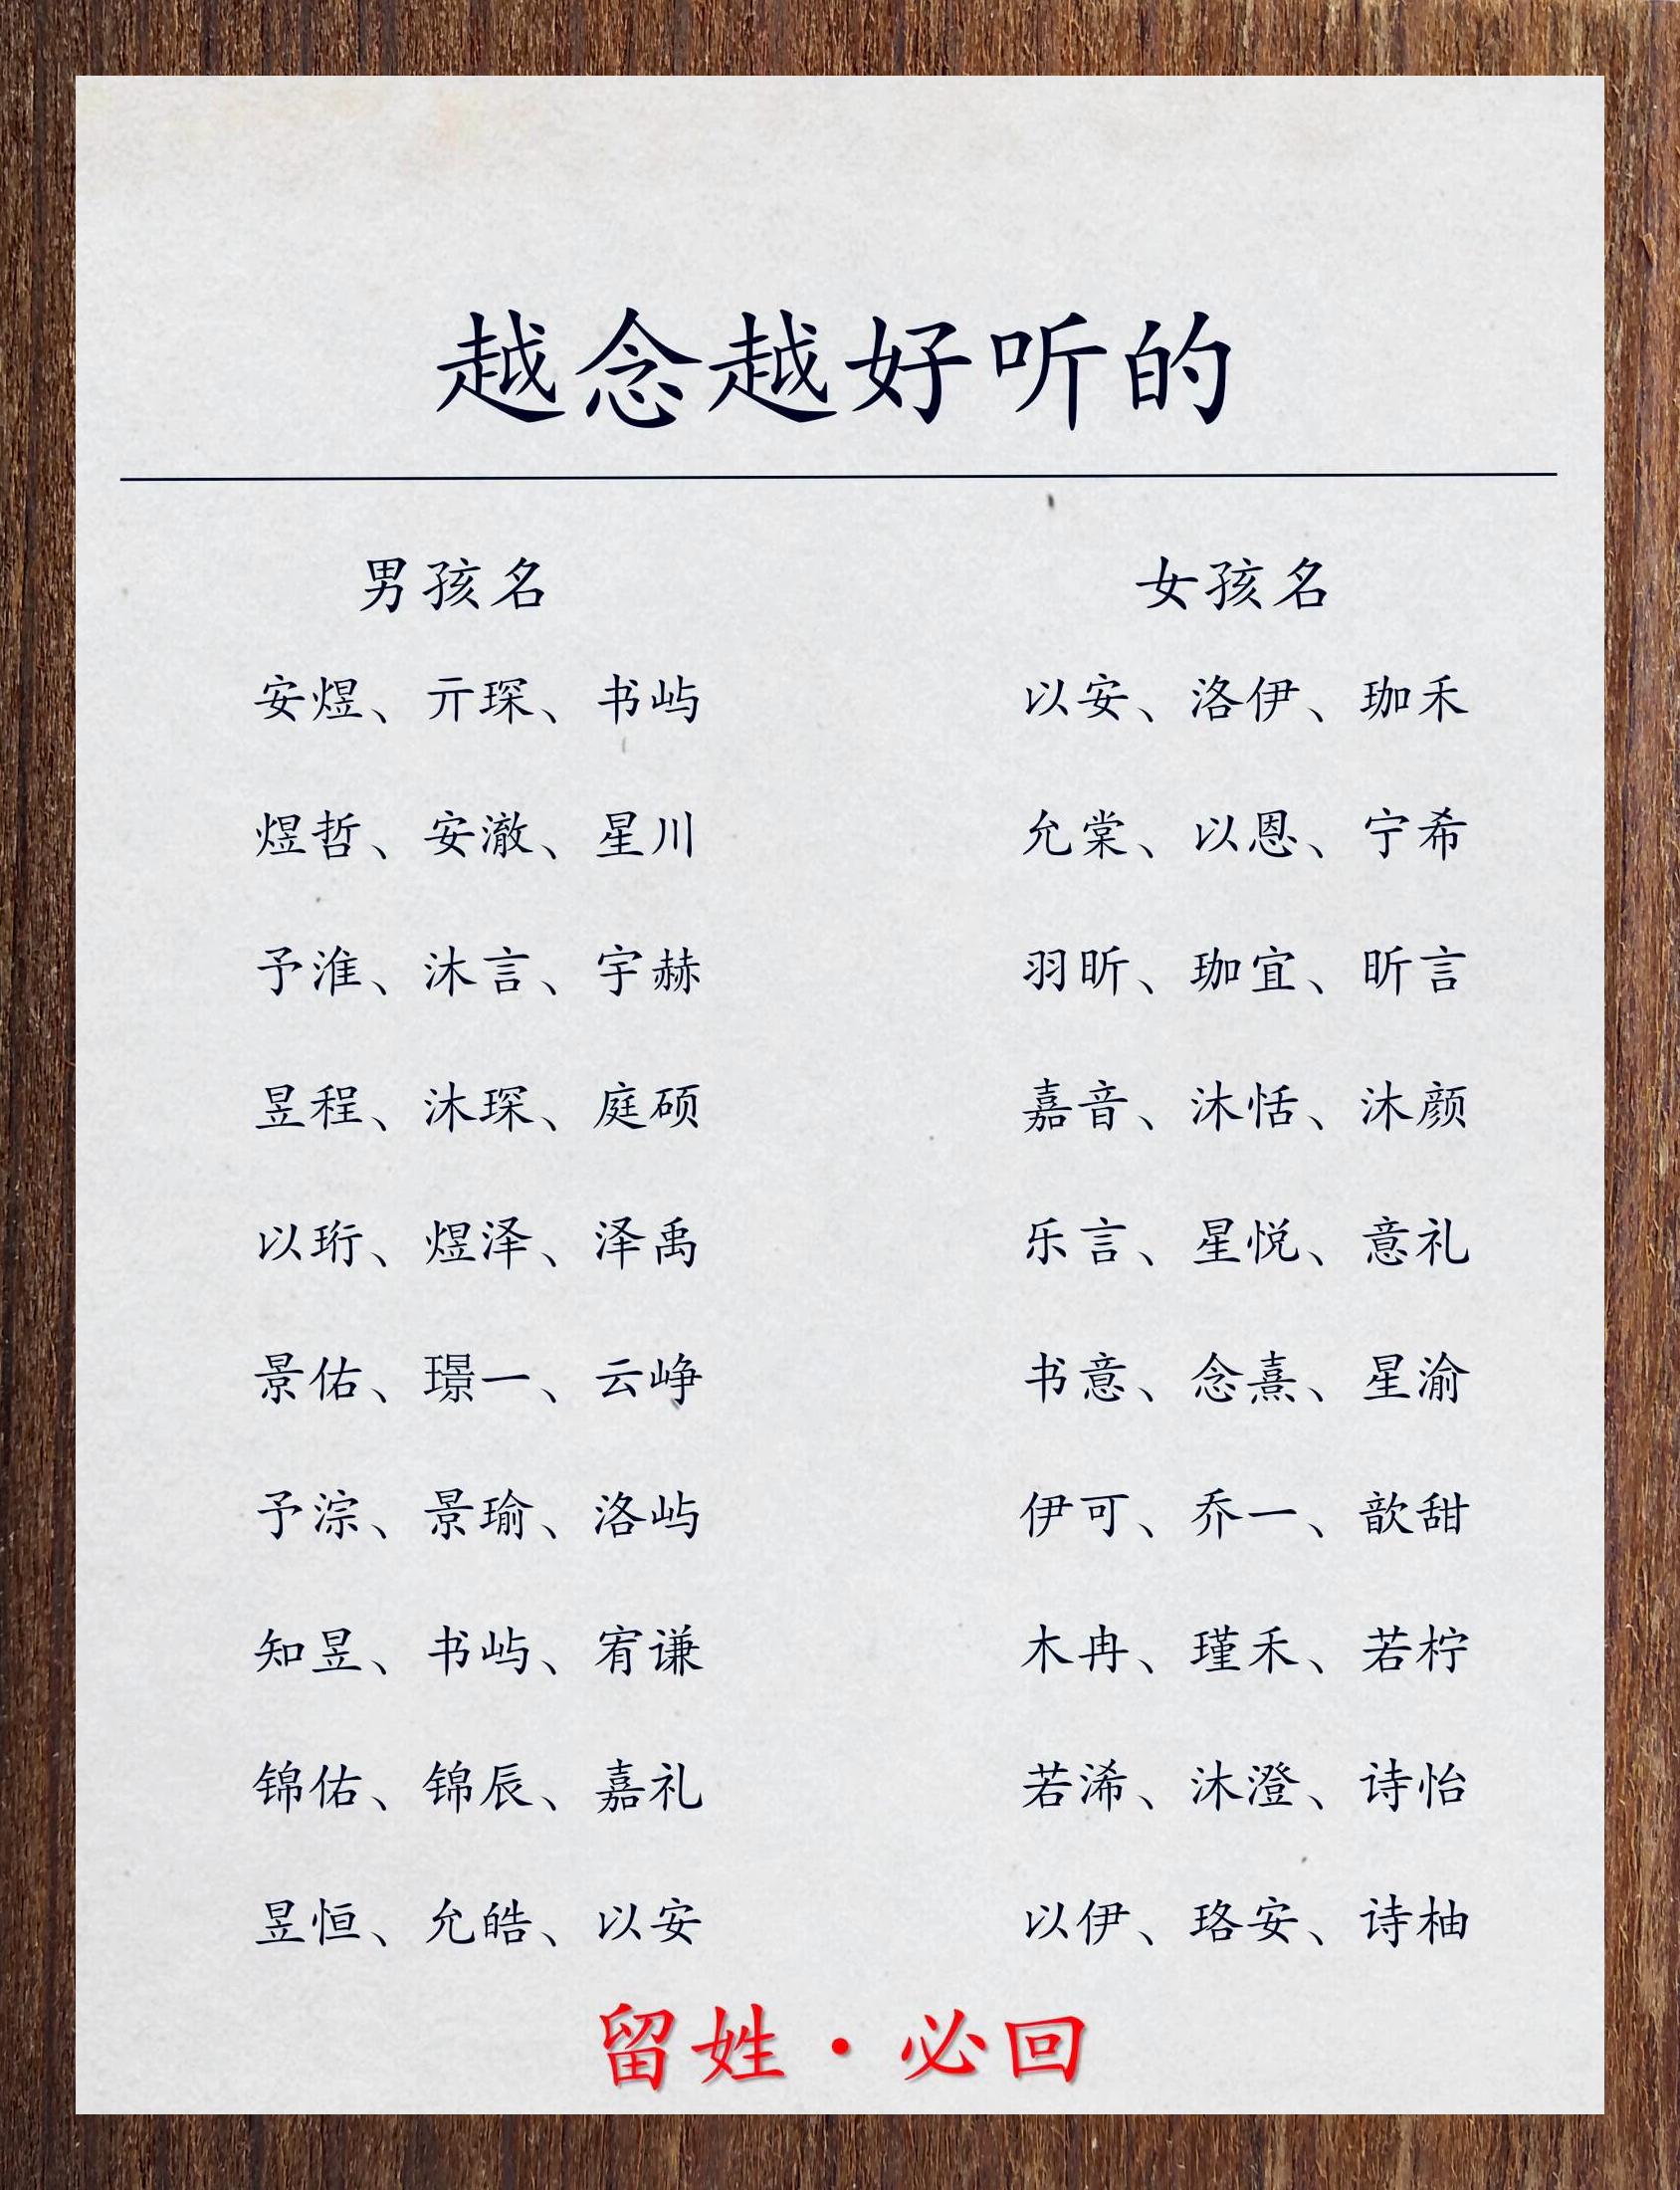 越念越好听的
男孩名
安煜、亓琛、书屿
煜哲、安澈、星川
予淮、沐言、宇赫
昱程、沐琛、庭硕
以珩、煜泽、泽禹
景佑、璟一、云峥
予淙、景瑜、洛屿
知昱、书屿、宥谦
锦佑、锦辰、嘉礼
昱恒、允皓、以安
女孩名
以安、洛伊、珈禾
允棠、以恩、宁希
羽昕、珈宜、昕言
嘉音、沐恬、沐颜
乐言、星悦、意礼
书意、念熹、星渝
伊可、乔一、歆甜
木冉、瑾禾、若柠
若浠、沐澄、诗怡
以伊、珞安、诗柚
留姓·必回